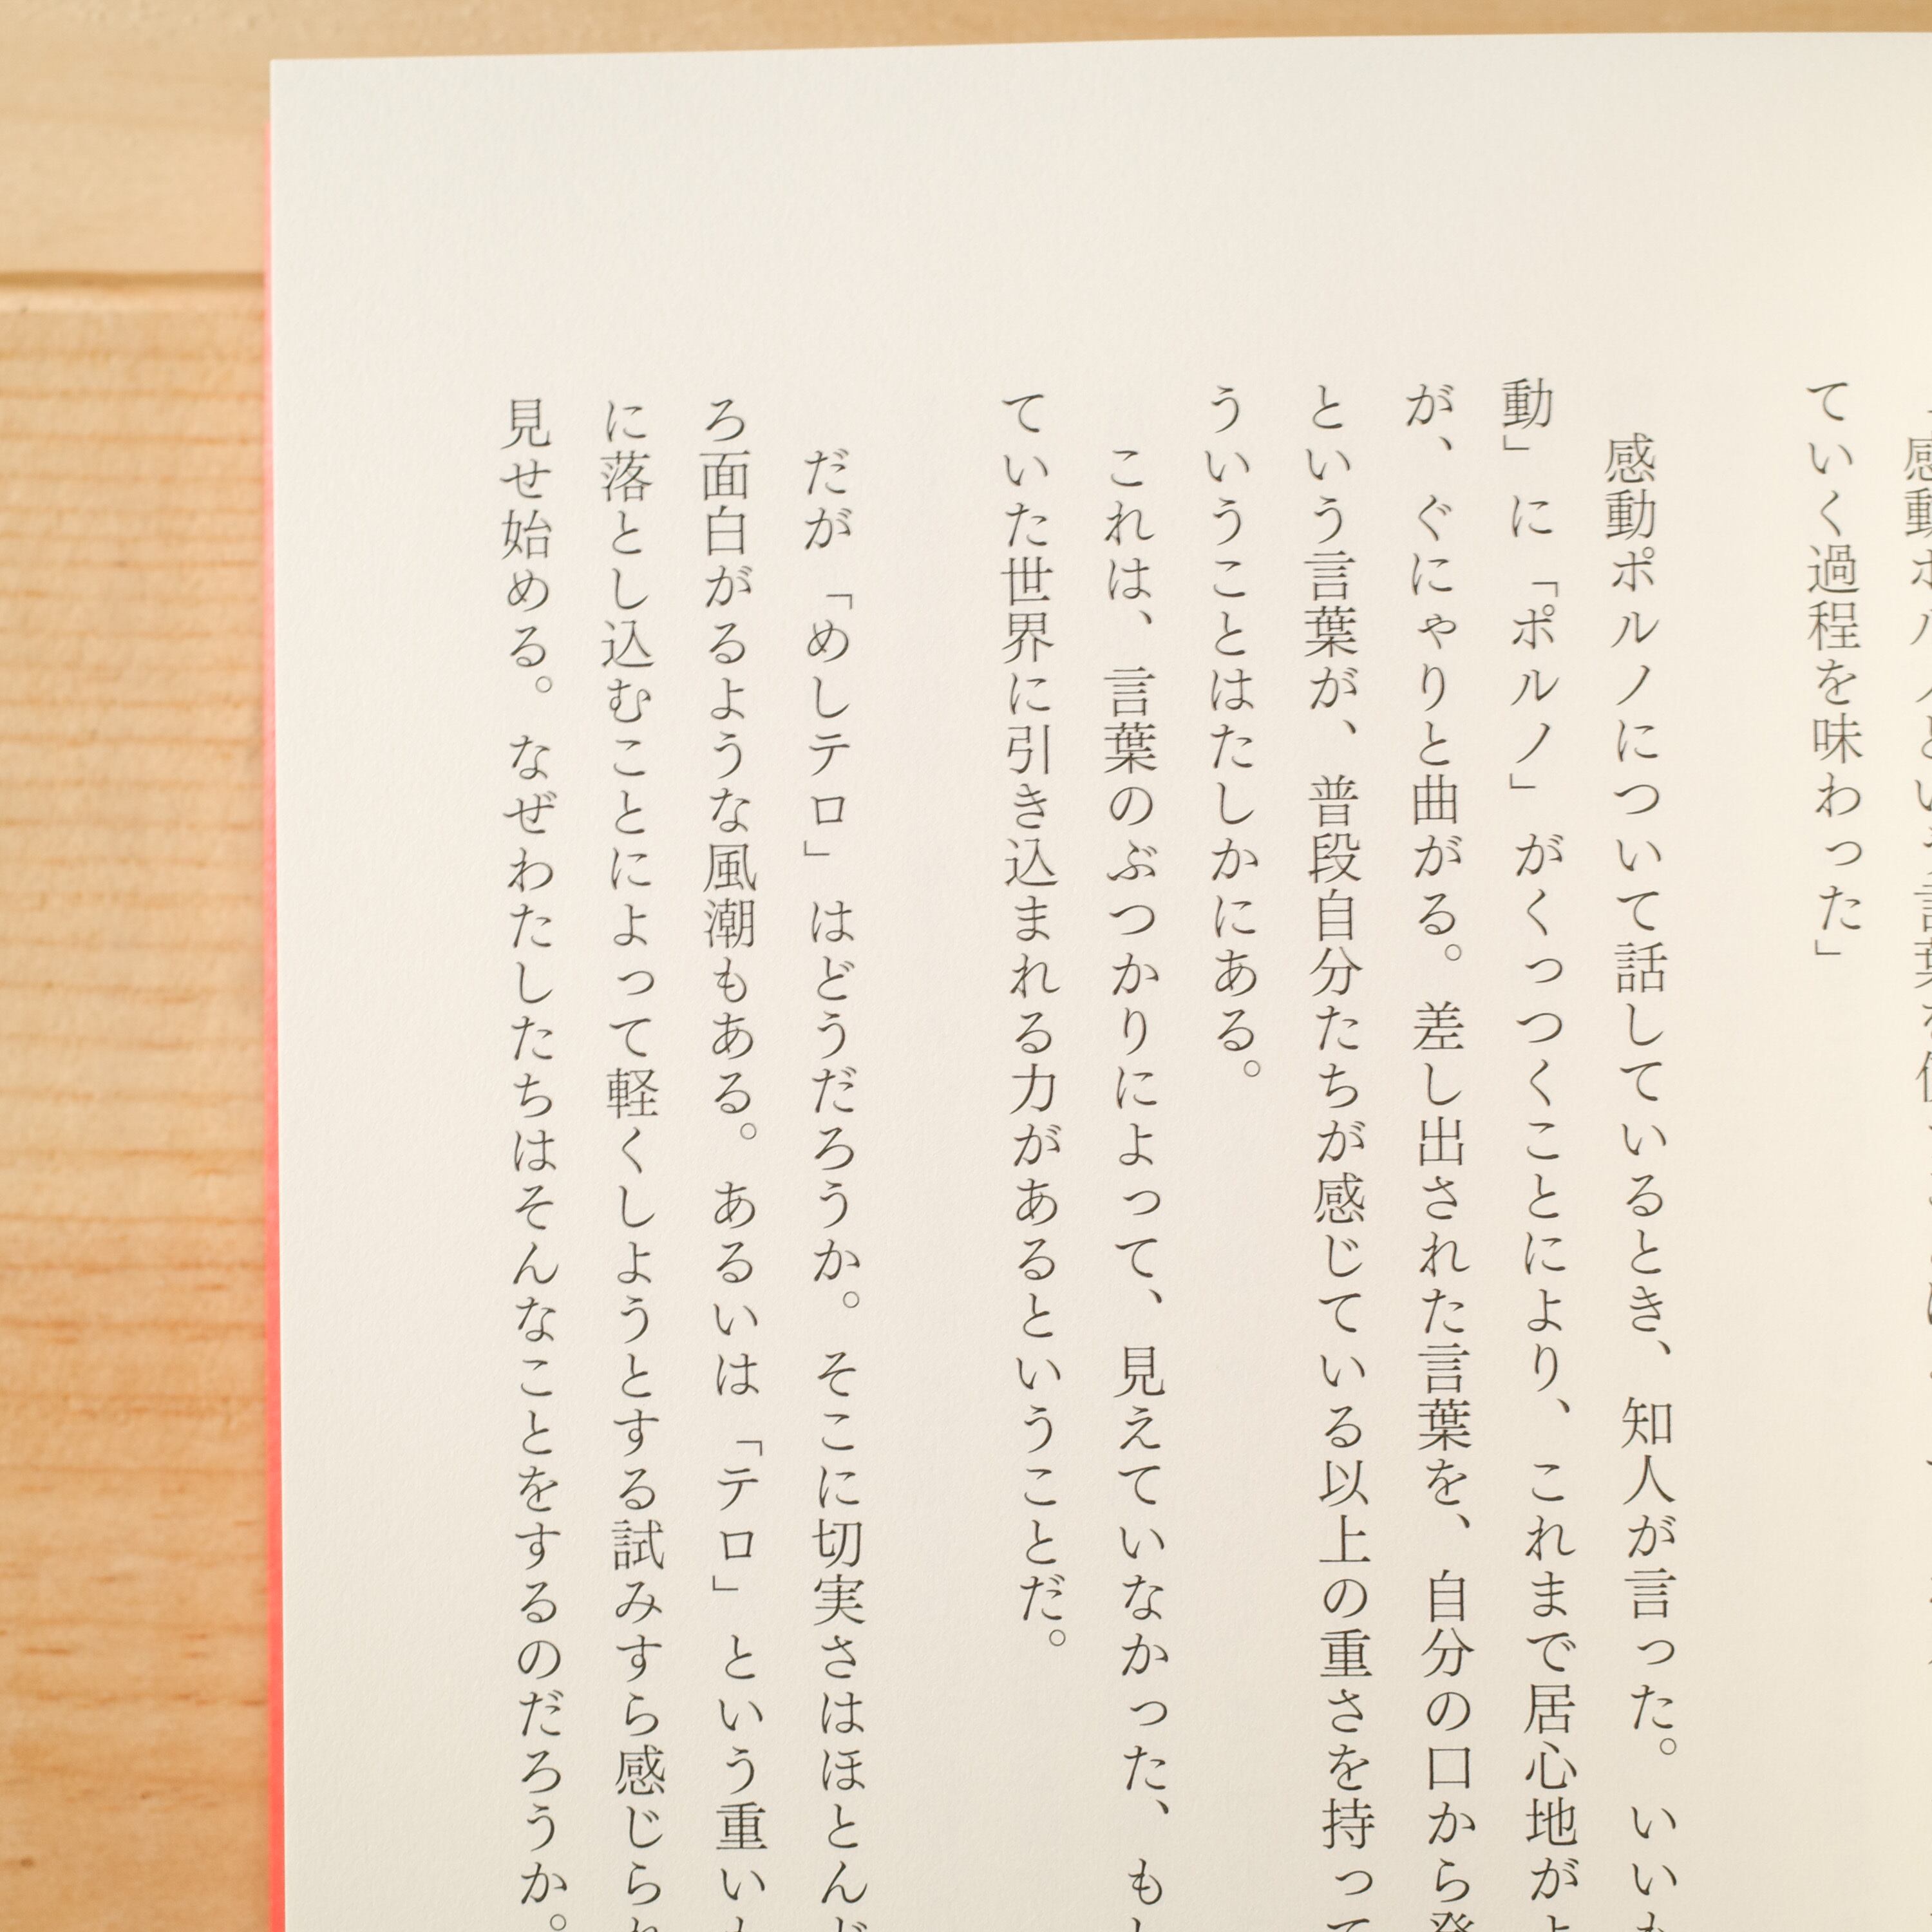 ていく過程を味わった」
感動ポルノについて話しているとき、知人が言った。いい
動」に「ポルノ」がくっつくことにより、これまで居心地が
が、ぐにゃりと曲がる。差し出された言葉を、自分の口から発
という言葉が、普段自分たちが感じている以上の重さを持って
ういうことはたしかにある。
これは、言葉のぶつかりによって、見えていなかった、も
ていた世界に引き込まれる力があるということだ。
だが「めしテロ」はどうだろうか。そこに切実さはほとんど
ろ面白がるような風潮もある。あるいは「テロ」という重い
に落とし込むことによって軽くしようとする試みすら感じられ
見せ始める。なぜわたしたちはそんなことをするのだろうか。